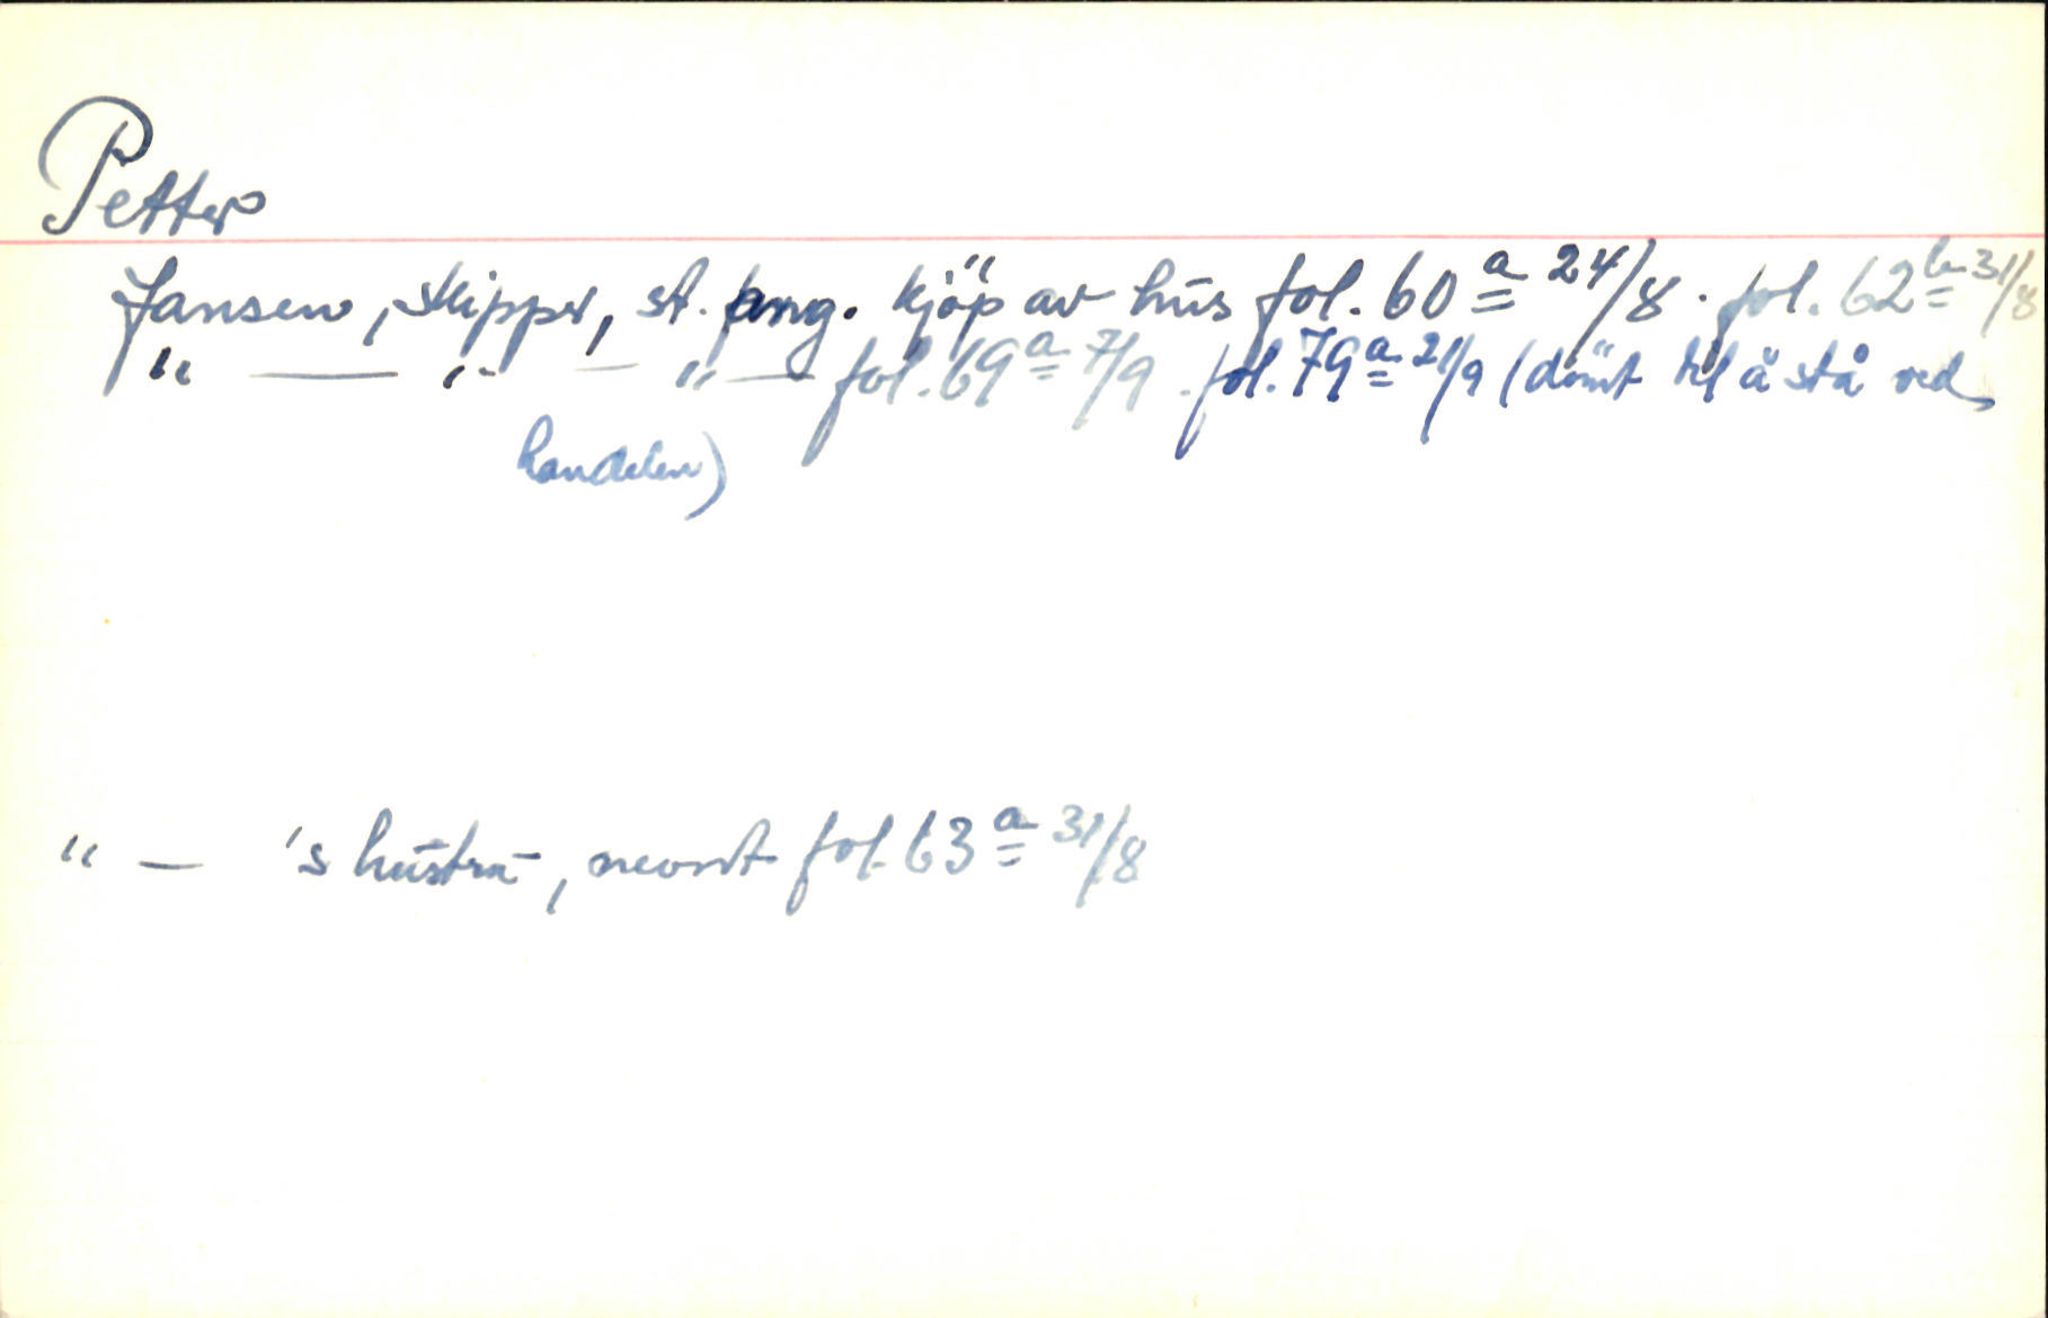 Petter
Jansen, skipper, st. ang. kjöp av hus fol. 60a 24/8. fol. 62b 31/8
" — " — " — fol. 69a 7/9. fol. 79a 21/9 (dömt til å stå ved
handelen)
" — 's hustru, nevnt fol. 63a 31/8